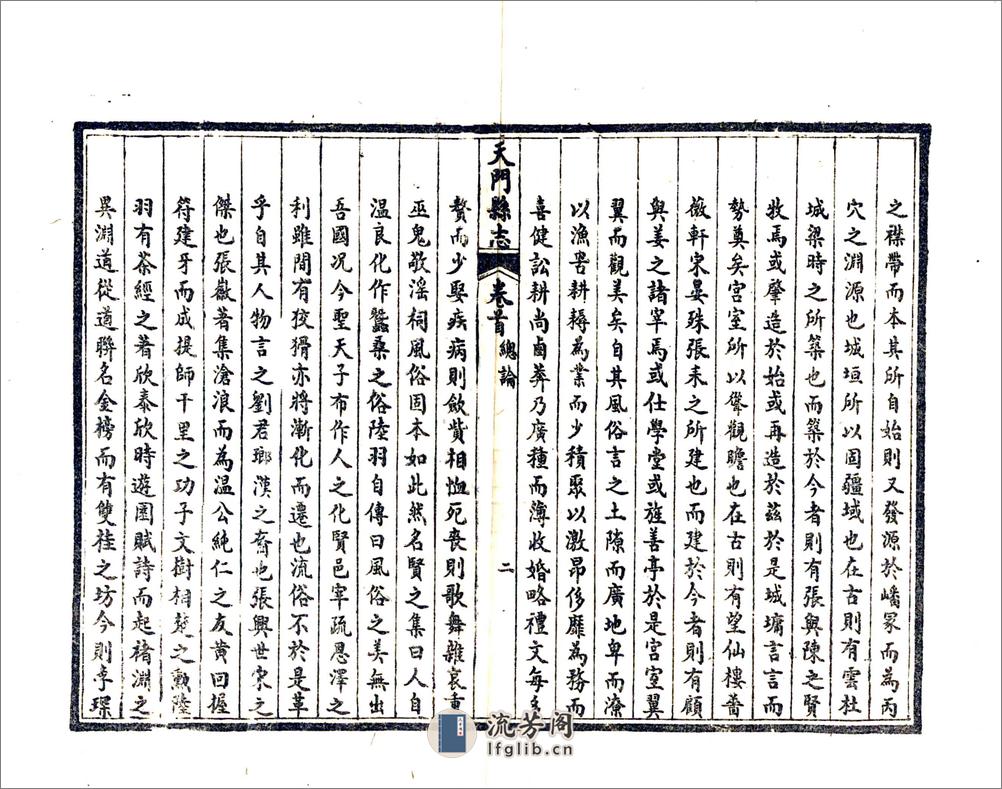 之襟帶而本其所自始則又發源於嶓冢而為丙
穴之淵源也城垣所以固疆域也在古則有雲杜
城梁時之所築也而築於今者則有張與陳之賢
牧焉或肇造於始或再造於茲於是城墉言言而
勢奠矣宮室所以聳觀瞻也在古則有望仙樓蕭
徽軒宋晏殊張耒之所建也而建於今者則有顧
與姜之諸宰焉或仕學堂或旌善亭於是宮室翼
翼而觀美矣自其風俗言之土隙而廣地卑而潦
以漁罟耕耨為業而少積聚以激昂侈靡為務而
喜健訟耕尚鹵莽乃廣種而薄收婚略禮文每多
天門縣志
卷首
總論
二
贅而少娶疾病則歛貲相恤死喪則歌舞雜哀重
巫鬼敬淫祠風俗固本如此然名賢之集曰人自
温良化作蠶桑之俗陸羽自傳曰風俗之美無出
吾國况今聖天子布作人之化賢邑宰疏恩澤之
利雖間有狡猾亦將漸化而遷也流俗不於是革
乎自其人物言之劉君瑯漢之裔也張興世宋之
傑也張徽著集滄浪而為温公純仁之友黄回握
符建牙而成提師千里之功子文樹相楚之勳陸
羽有茶經之著欣泰欣時遊園賦詩而起褚淵之
異淵道從道聯名金榜而有雙桂之坊今則李琛
流芳阁
lfglib.cn